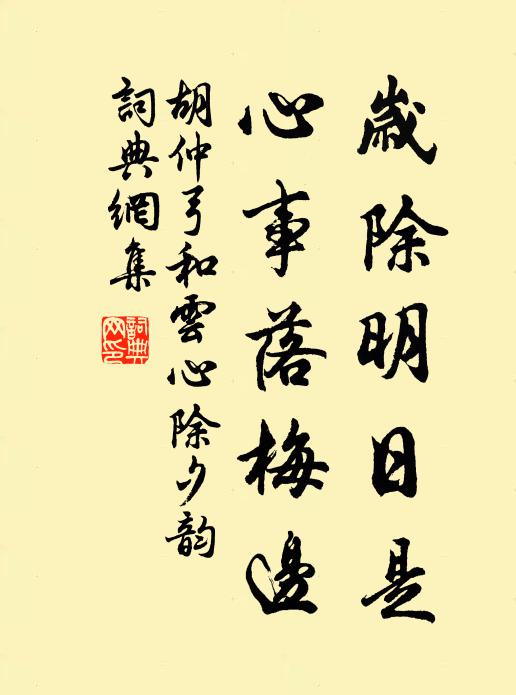 歲除明日是
心事落梅邊
胡仲弓和雲心除夕韵
詞典網集
詞典
网印